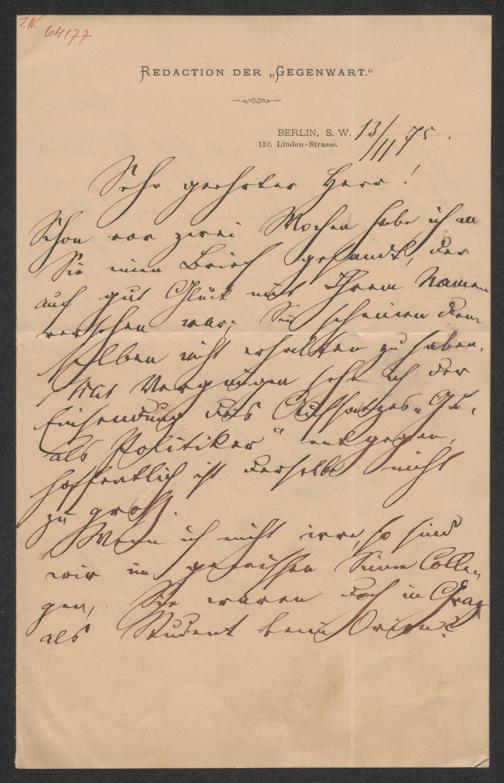 J.N. 64177
REDACTION DER „GEGENWART.“
BERLIN, S. W. 13/III 75.
110. Linden-Strasse.
Sehr geehrter Herr!
Schon vor zwei Wochen habe ich an
Sie einen Brief gesandt, der
auf gut Glück mit Ihrem Namen
versehen war; Sie scheinen den-
selben nicht erhalten zu haben.
Mit Vergnügen sehe ich der
Einsendung des Aufsatzes „
als Politiker“ entgegen,
hoffentlich ist derselbe nicht
zu groß.
Wenn ich nicht irre so sind
wir im gewissen Sinne Colle-
gen, Sie waren doch in Graz
als Student beim Orion?